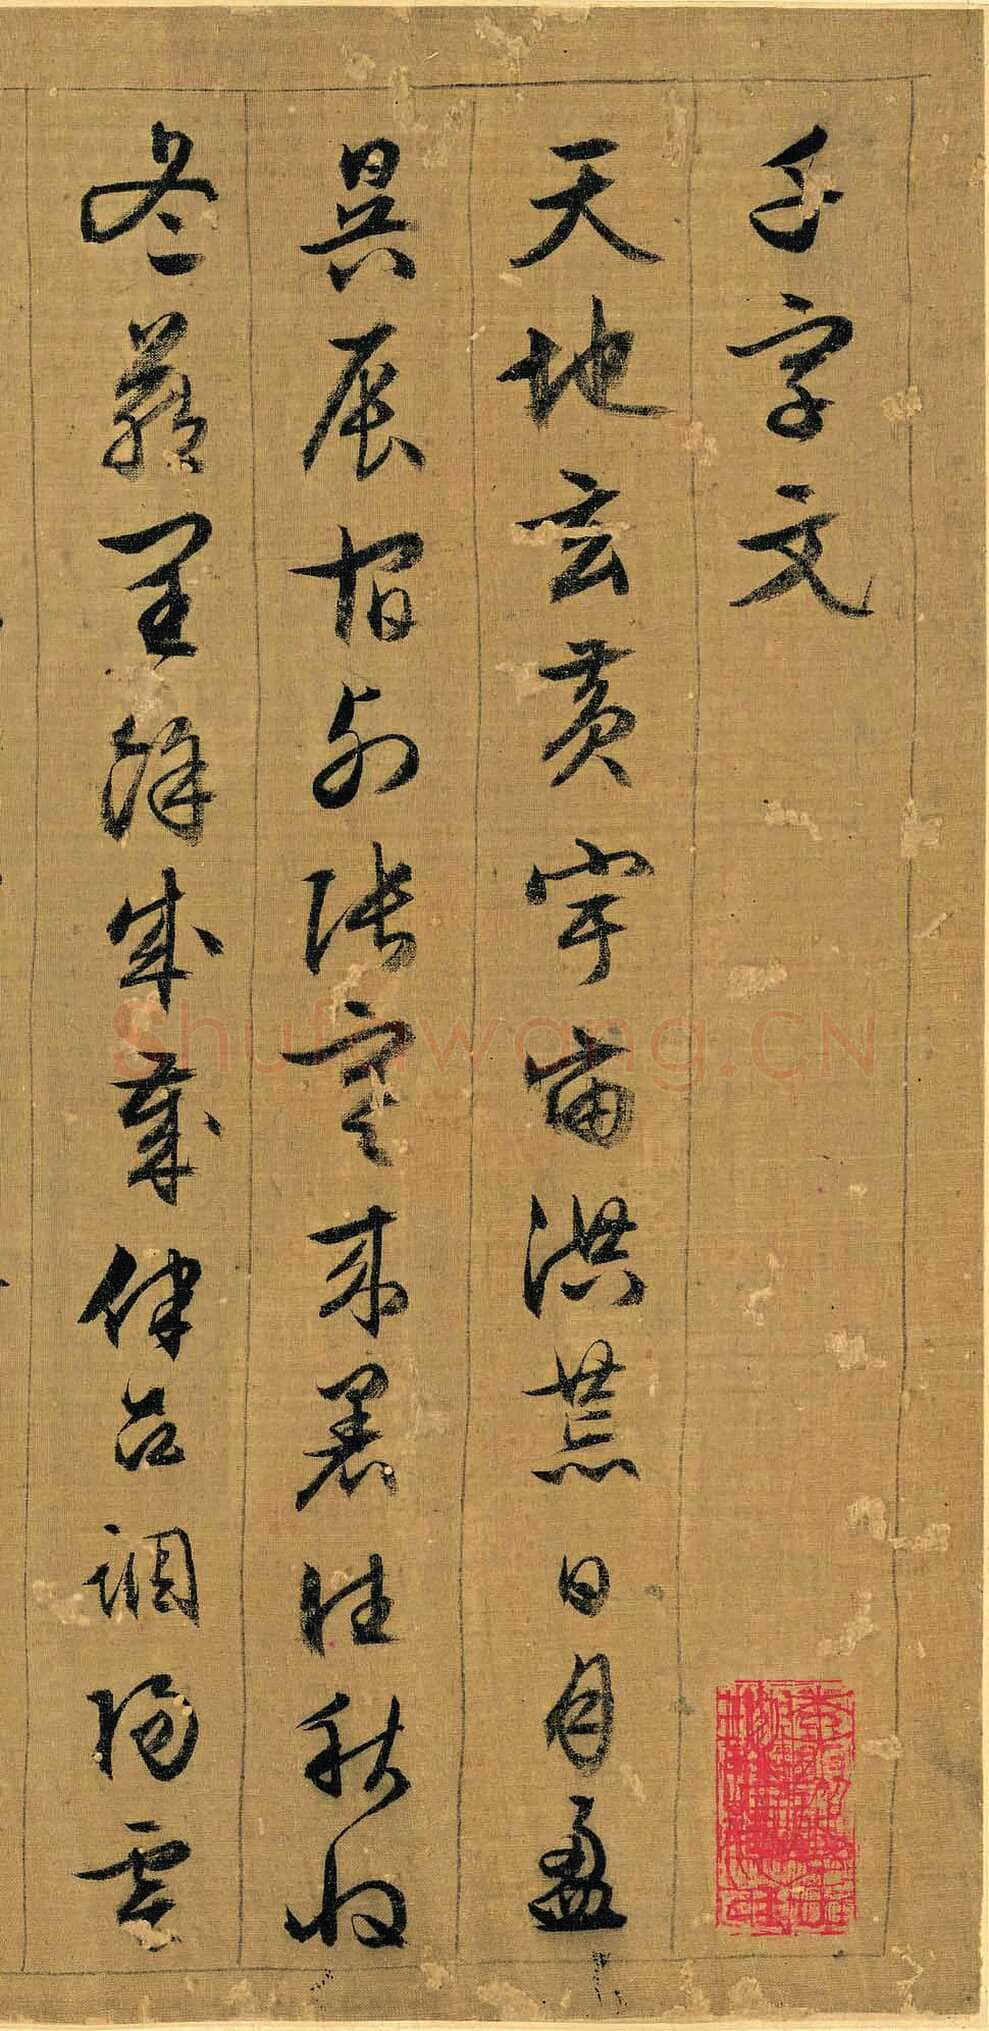 千字文
天地玄黄宇宙洪荒日月盈
昃辰宿列张寒来暑往秋收
冬藏闰余成岁律吕调阳云
Shufawang.CN